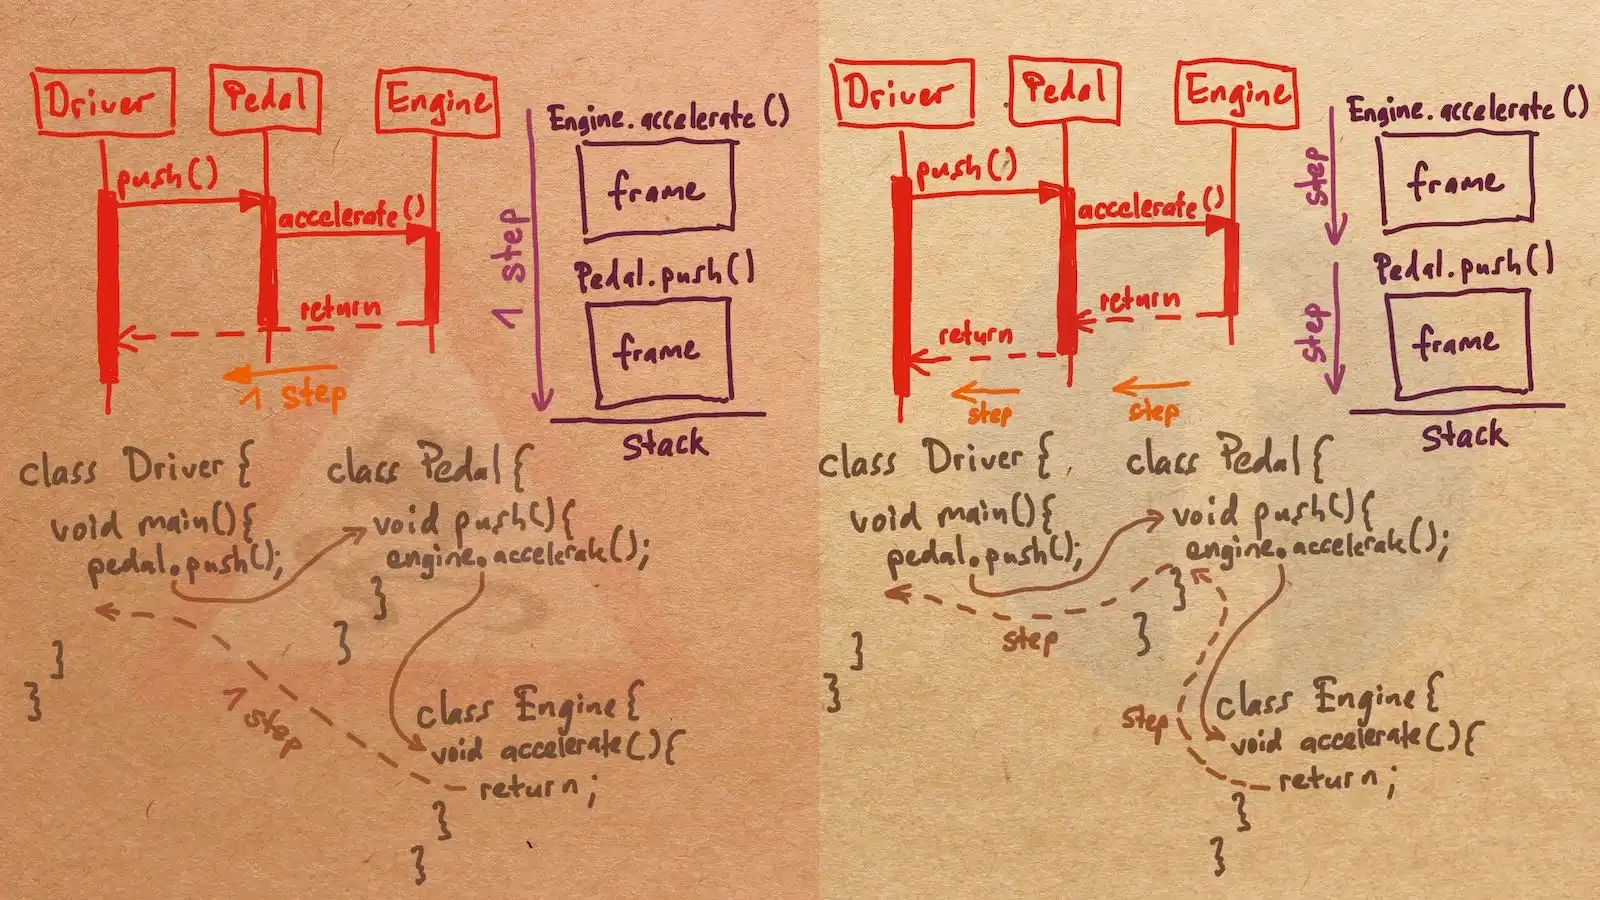 Driver
Pedal
Engine
push()
accelerate()
return
1 step
1 step
Engine.accelerate()
frame
Pedal.push()
frame
Stack
class Driver {
void main(){
pedal.push();
}
}
class Pedal {
void push(){
engine.accelerate();
}
}
1 step
class Engine {
void accelerate(){
return;
}
}
Driver
Pedal
Engine
push()
accelerate()
return
return
step
step
step
step
Engine.accelerate()
frame
Pedal.push()
frame
Stack
class Driver {
void main(){
pedal.push();
}
}
class Pedal {
void push(){
engine.accelerate();
}
}
step
step
class Engine {
void accelerate(){
return;
}
}